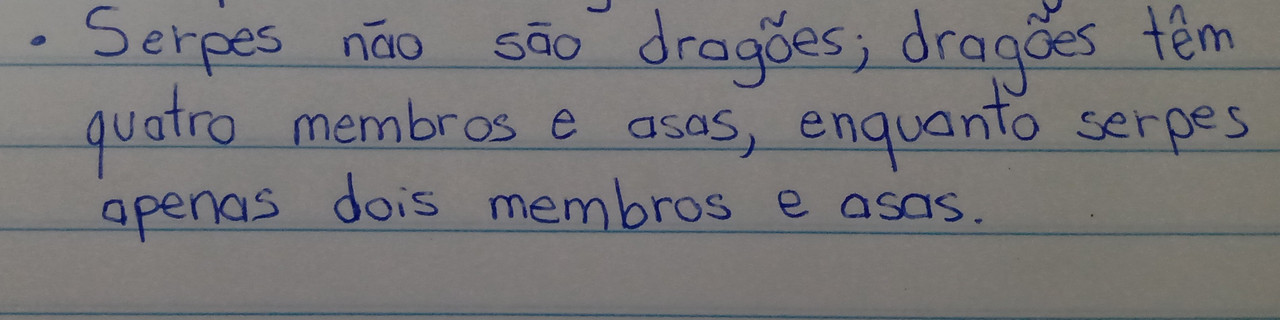 • Serpes não são dragões; dragões têm
quatro membros e asas, enquanto serpes
apenas dois membros e asas.